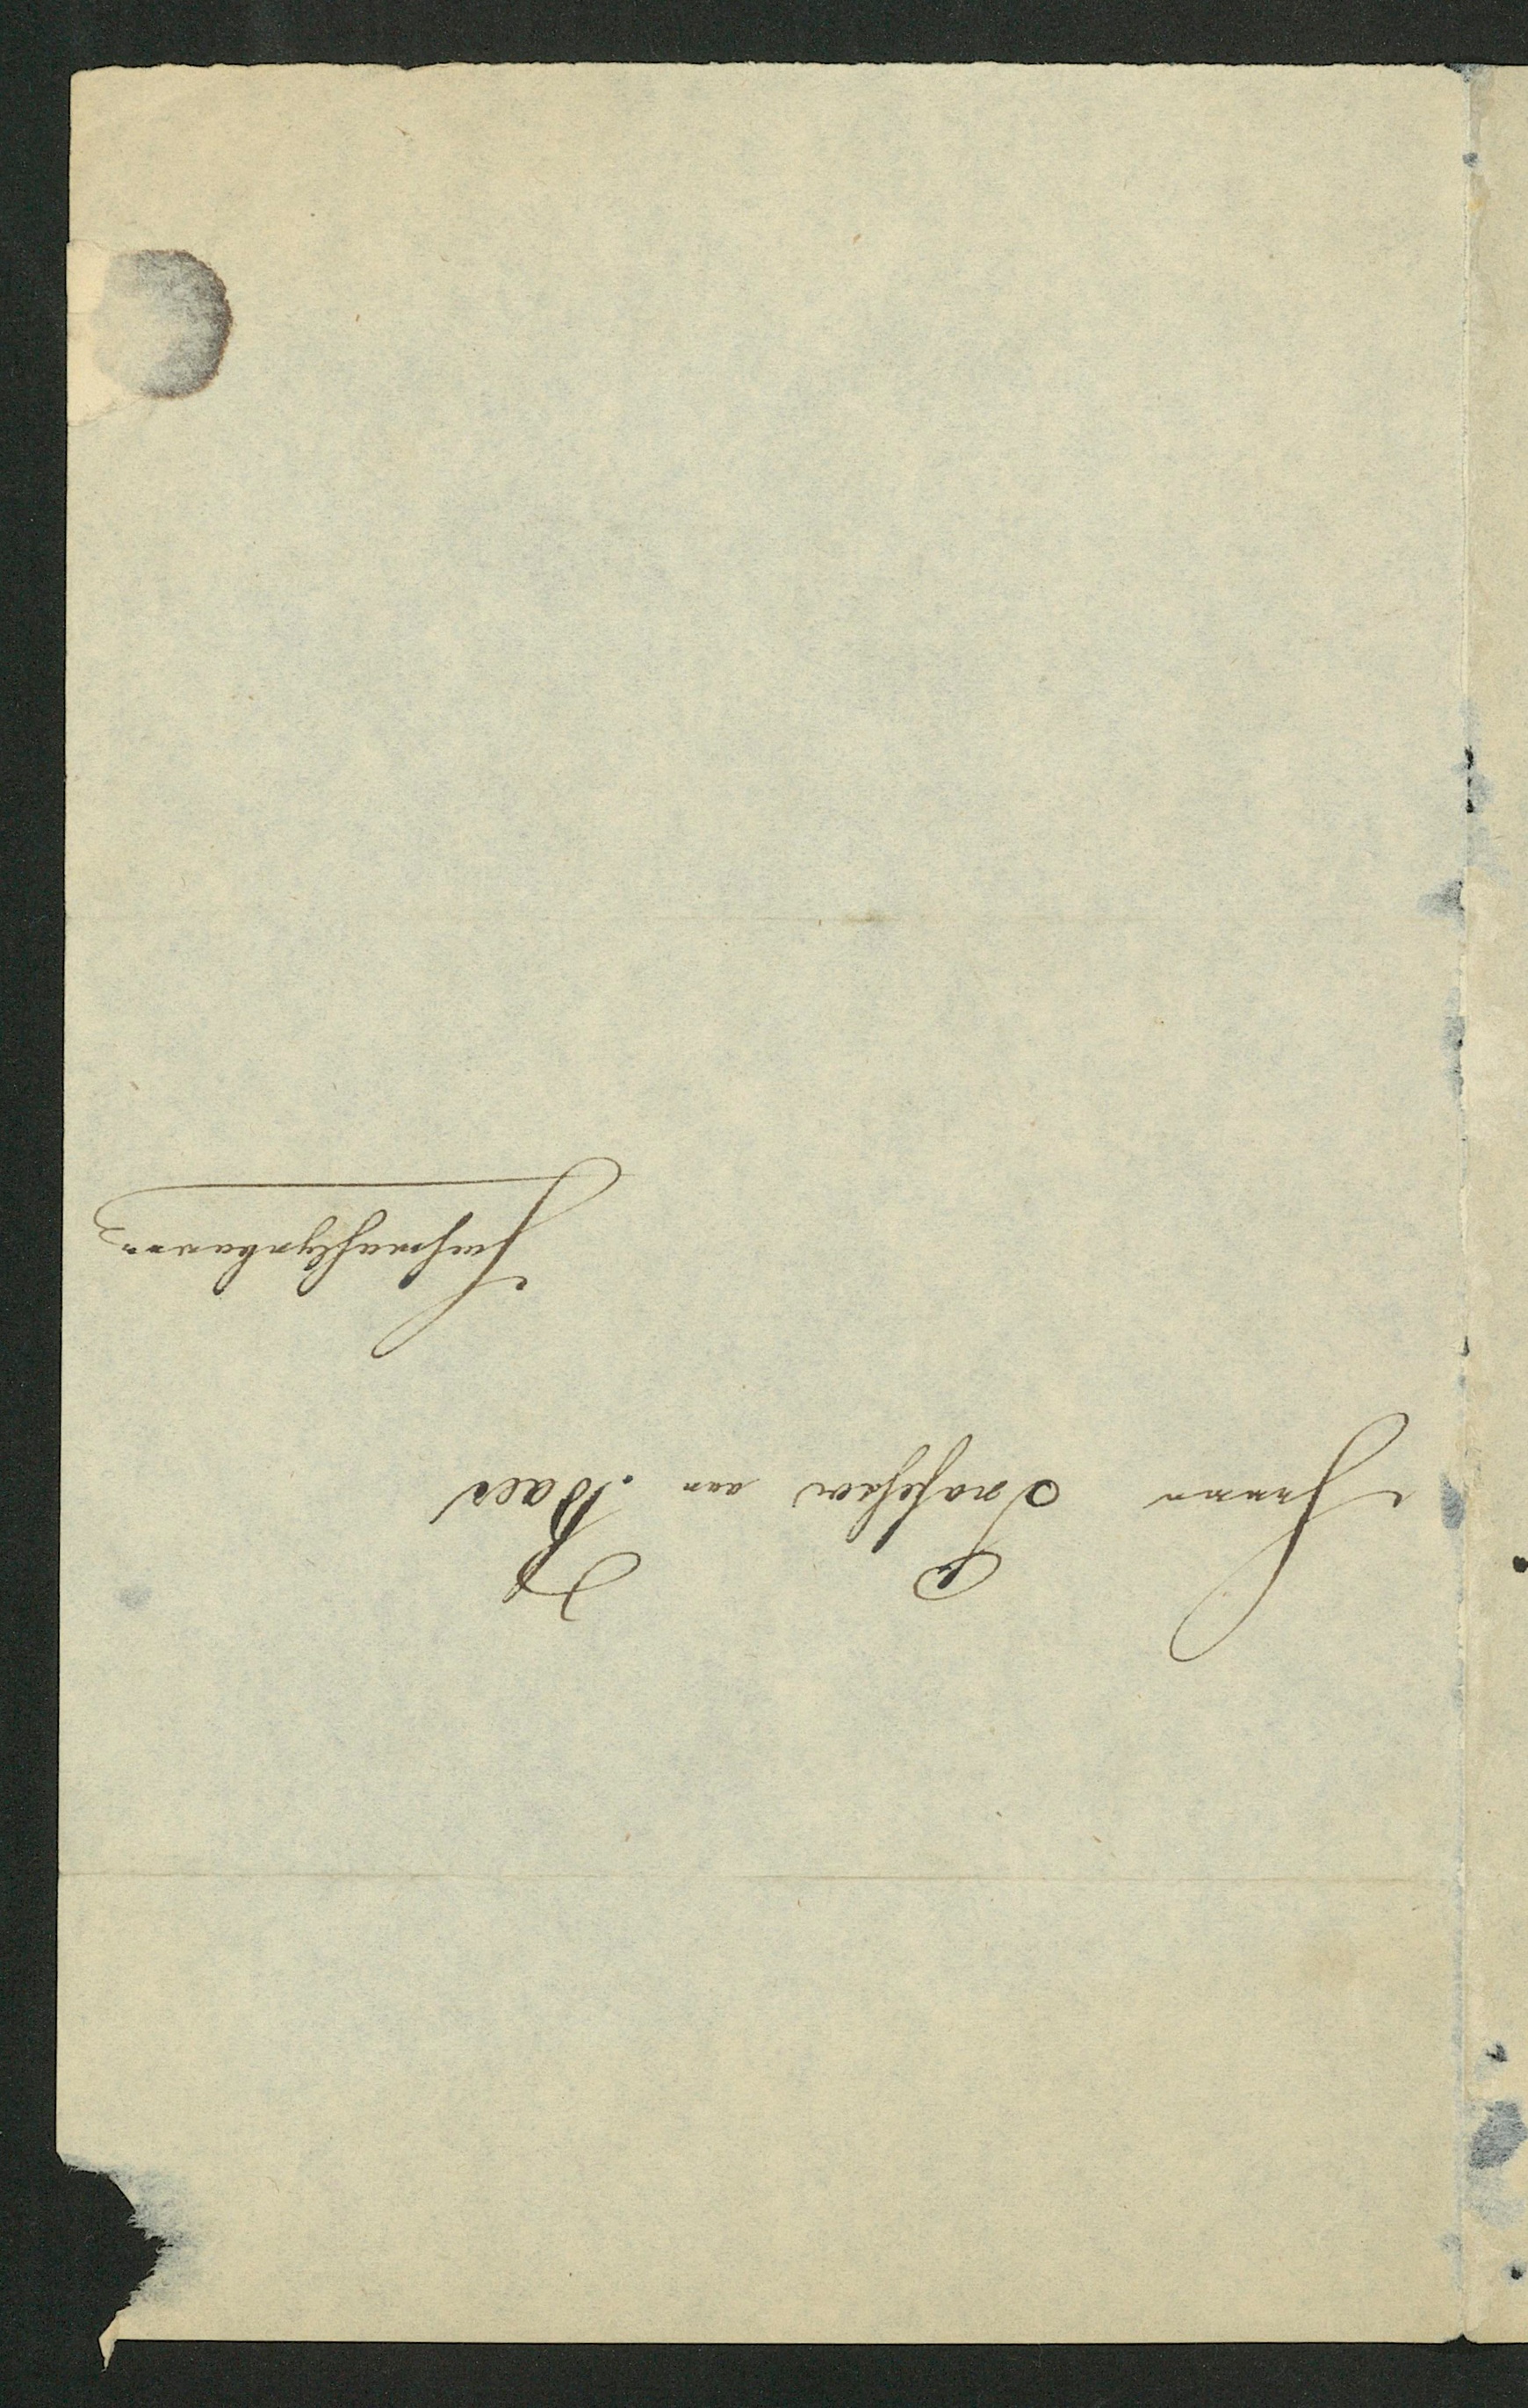 Herrn Professor van Baer
Hochwohlgeboren